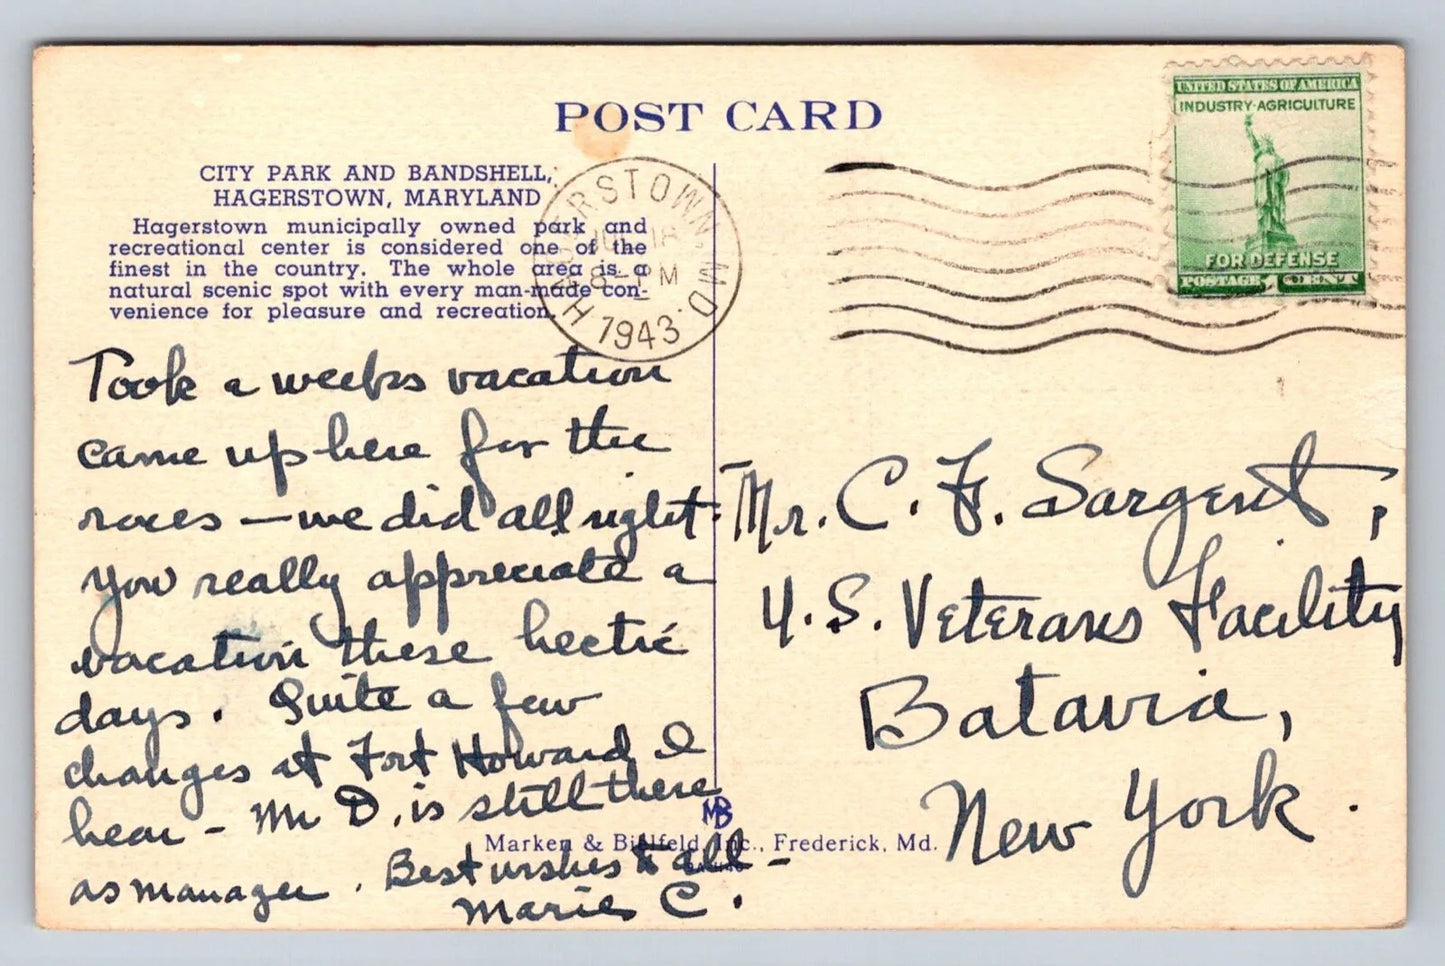 POST CARD
CITY PARK AND BANDSHELL,
HAGERSTOWN, MARYLAND
Hagerstown municipally owned park and
recreational center is considered one of the
finest in the country. The whole area is a
natural scenic spot with every man-made con-
venience for pleasure and recreation.
HAGERSTOWN, MD.
JUL 18
8 PM
1943
UNITED STATES OF AMERICA
INDUSTRY·AGRICULTURE
FOR DEFENSE
POSTAGE 1 CENT
Took a weeks vacation
came up here for the
races – we did all right.
You really appreciate a
vacation these hectic
days. Quite a few
changes at Fort Howard I
hear – Mr D. is still there
as manager. Best wishes to all –
Marie C.
Mr. C. F. Sargent,
U. S. Veterans Facility
Batavia,
New York.
MB
Marken & Bielfeld, Inc., Frederick, Md.